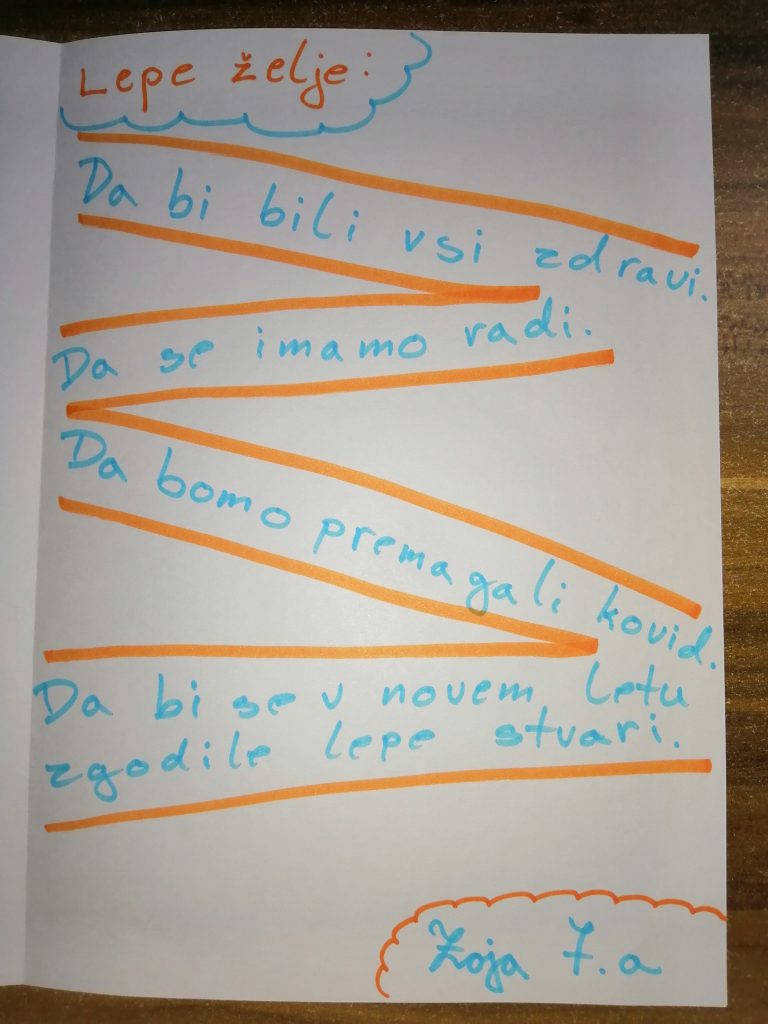 Lepe želje:
Da bi bili vsi zdravi.
Da se imamo radi.
Da bomo premagali kovid.
Da bi se v novem letu
zgodile lepe stvari.
Zoja 7.a